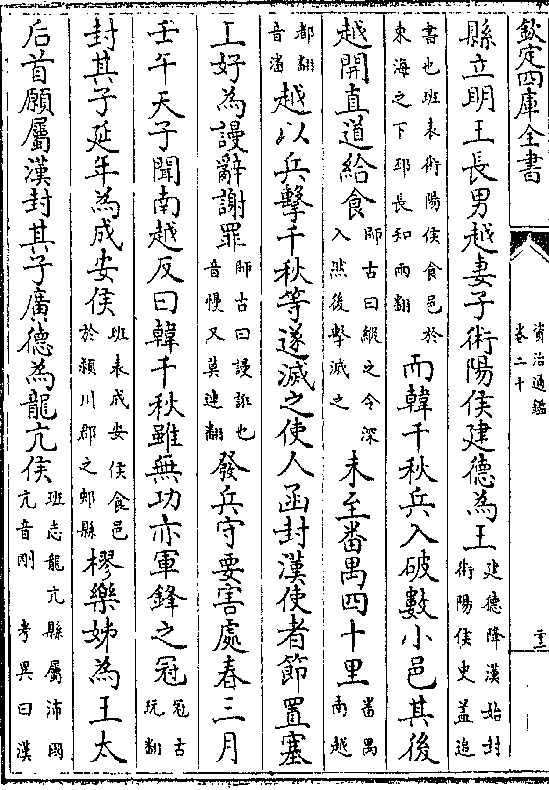 欽定四庫全書
資治通鑑
卷二十
縣立明王長男越妻子術陽侯建德為王建德降漢始封術陽侯史蓋追
書也班表術陽侯食邑於東海之下邳長知兩翻而韓千秋兵入破數小邑其後
越開直道給食師古曰縱之令深入然後擊滅之未至番禺四十里番禺南越
都翻音潘越以兵擊千秋等遂滅之使人函封漢使者節置塞
上好為謾辭謝罪師古曰謾誑也音慢又莫連翻發兵守要害處春三月
壬午天子聞南越反曰韓千秋雖無功亦軍鋒之冠冠古玩翻
封其子延年為成安侯班表成安侯食邑於潁川郡之郟縣樛樂姊為王太
后首願屬漢封其子廣德為龍亢侯班志龍亢縣屬沛國亢音剛考異曰漢